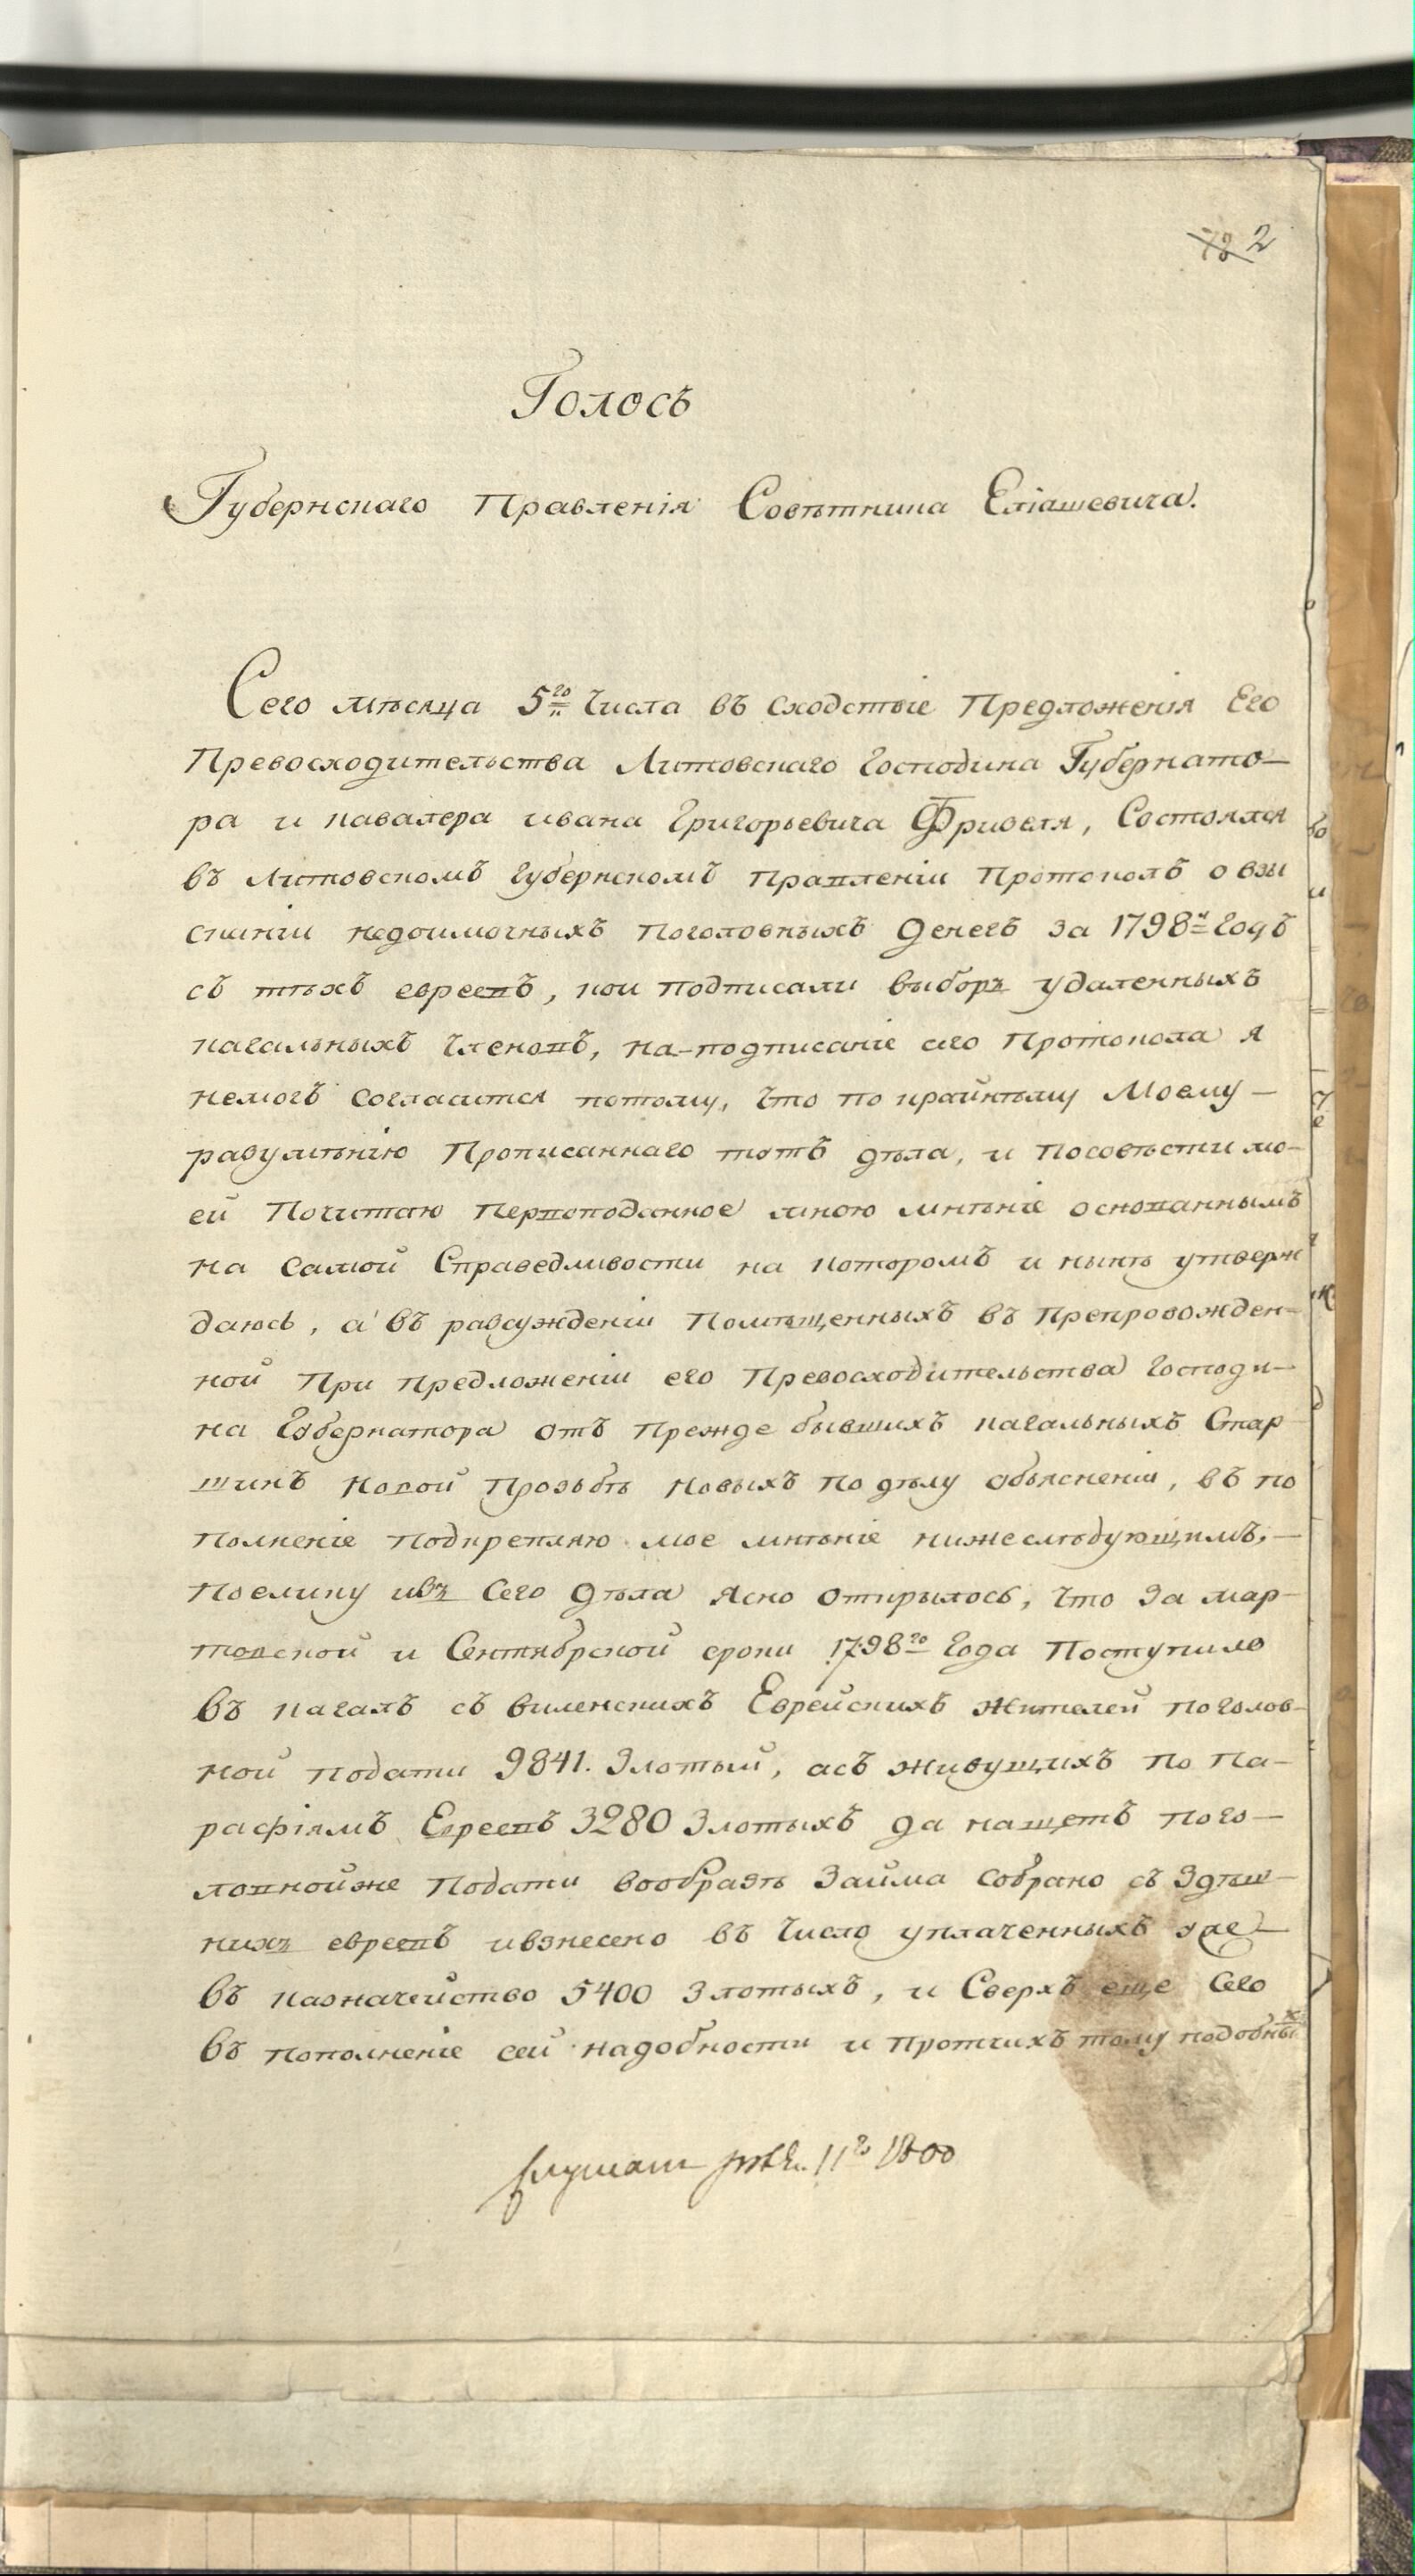 78 2
Голосъ
Губернскаго Правленія Совѣтника Еліашевича.
Сего мѣсяца 5го числа въ сходствіе Предложенія Его
Превосходительства Литовскаго Господина Губернато-
ра и кавалера ивана Григорьевича Фризеля, Состоялся
въ Литовскомъ Губернскомъ Правленіи Протоколъ о взы
сканіи недоимочныхъ поголовныхъ денегъ за 1798й Годъ
съ тѣхъ евреевъ, кои подписали выборъ удаленныхъ
кагальныхъ членовъ, на-подписаніе сего Протокола я
немогъ согласится потому, что по крайнѣму Моему-
разумѣнію Прописаннаго тотъ дѣла, и посовѣсти мо-
ей Почитаю Первоподанное мною мнѣніе основаннымъ
на самой Справедливости на которомъ и нынѣ утверж
даюсь, а въ разсужденіи Помѣщенныхъ въ Препровожден-
ной При предложеніи его Превосходительства Господи-
на Губернатора отъ прежде бывшихъ кагальныхъ Стар
шинъ новой прозьбѣ новыхъ по дѣлу объясненіи, въ по
полненіе подкрепляю мое мнѣніе нижеслѣдующимъ.-
Поелику изъ Сего дѣла Ясно открылось, что за мар-
товской и Сентябрской сроки 1798го Года Поступило
въ кагалъ съ виленскихъ Еврейскихъ жителей поголов-
ной подати 9841. Злотый, асъ живущихъ по па-
рафіямъ Евреевъ 3280 Злотыхъ да нащетъ пого-
ловнойже подати вообразѣ Займа собрано съ здѣш-
нихъ евреевъ ивзнесено въ число уплаченныхъ уже-
въ казначейство 5400 Злотыхъ, и Сверхъ еще Сего
въ пополненіе сей надобности и протчихъ тому подобных
11го 1800